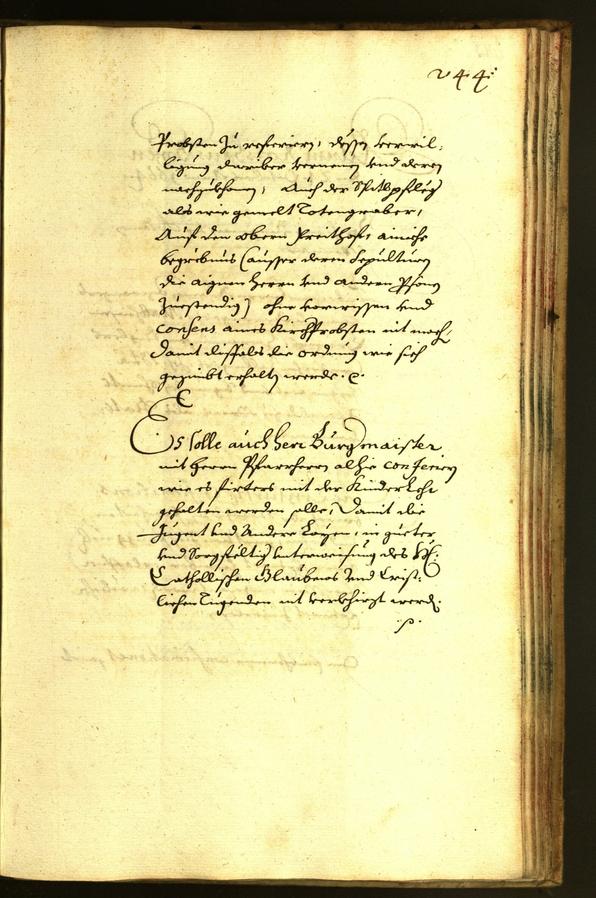 244.
Probsten zu referiern, dessen verwil-
ligung darüber vernemen vnd deren
nachzukhomen, Auch der Spitlpfleg
als wie gemelt Totengraber,
Auf den obern Freithof, ainiche
begrebnus (ausser deren Sepulturn
die aignen Herrn vnd andern Personen
zuestendig) ohne vorwissen vnd
consens aines KirchProbsten nit mach
damit dissfals die ordnung wie sich
gezimbt erhalten werde. e.
Es solle auch herr Burgmaister
mit Herrn Pfarrherrn alhie conferiern
wie es firters mit der Kinderlehr
gehalten werden solle, Damit die
Jugent vnd Andere Layen, in gueter
vnd Sorgfeltig vnterweisung des H:
Catholischen Glaubens vnd Crist-
lichen Tugenden nit verkhirzt werde.